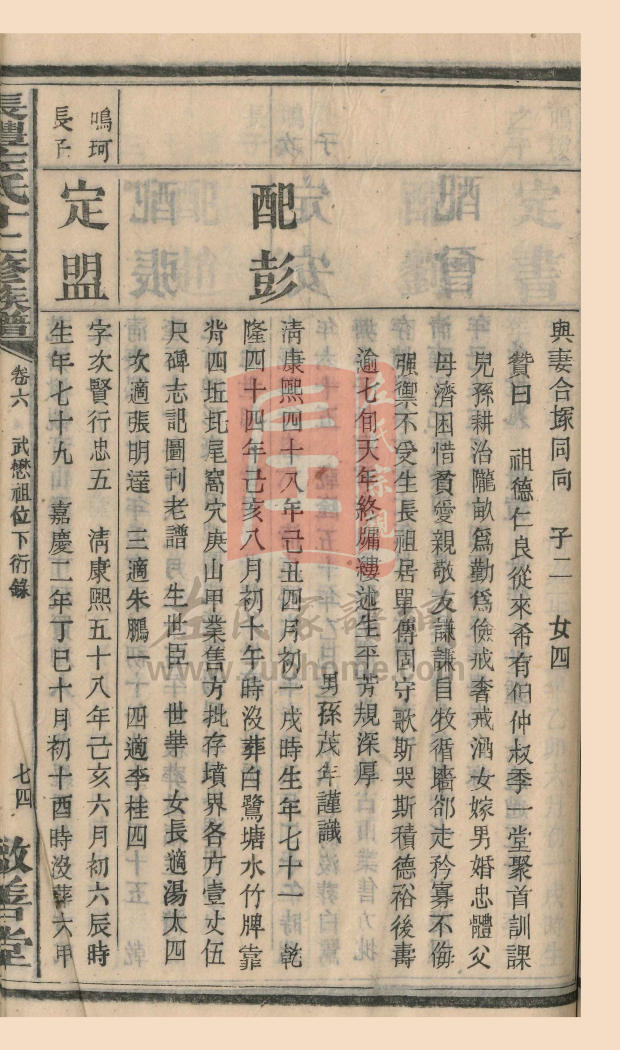 與妻合塚同向 子二 女四
贊曰 祖德仁良從來希有伯仲叔季一堂聚首訓課
兒孫耕治隴畝爲勤爲儉戒奢戒酒女嫁男婚忠體父
母濟困惜貧愛親敬友謙謙自牧循牆郤走矜寡不侮
强禦不受生長祖居單傳固守歌斯哭斯積德裕後壽
逾七旬天年終牖縷述生平芳規深厚
男孫茂年謹識
配彭
清康熙四十八年己丑四月初一戌時生年七十一 乾
隆四十四年己亥八月初十午時沒葬白鷺塘水竹牌靠
背四坵圫尾窩穴庚山甲業售方批存墳界各方壹丈伍
尺碑志記圖刊老譜 生世臣 世華 女長適湯太四
次適張明達 三適朱鵬 四適李桂四
鳴珂
長子
定盟
字次賢行忠五 清康熙五十八年己亥六月初六辰時
生年七十九 嘉慶二年丁巳十月初十酉時沒葬六甲
長醴左氏十二修族譜
卷六 武懋祖位下衍錄
七四
敬善堂
左氏宗親
左氏家譜網
www.zuohome.com